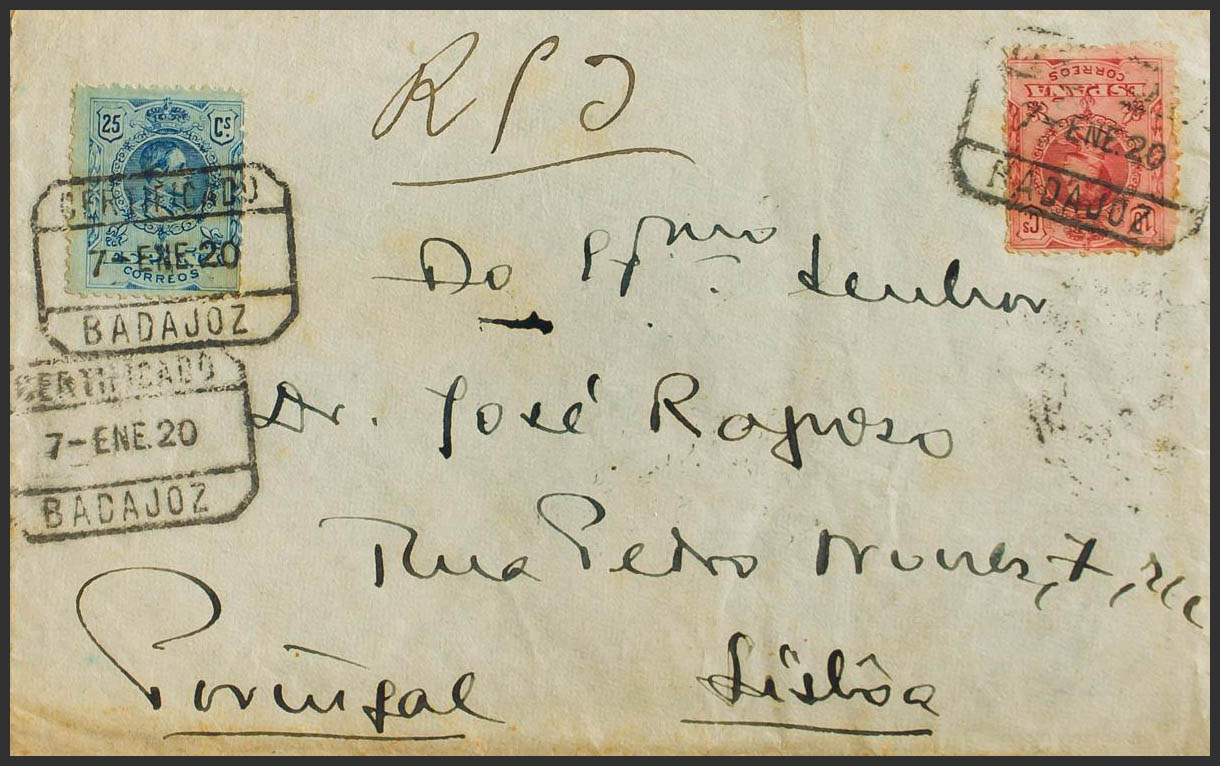 25 Cs
CORREOS
CERTIFICADO
7-ENE.20
BADAJOZ
CERTIFICADO
7-ENE.20
BADAJOZ
ESPAÑA
CORREOS
10 Cs
7-ENE.20
BADAJOZ
Do Exmo Senhor
Dr. José Raposo
Rua Pedro Nunes, 7,
Portugal Lisbôa